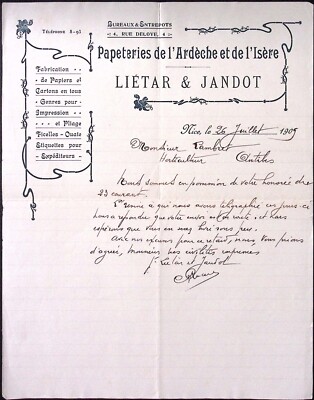 Téléphone 8-95
BUREAUX & ENTREPOTS
4, RUE DELOYE, 4
Papeteries de l'Ardèche et de l'Isère
LIÉTAR & JANDOT
Fabrication
de Papiers et
Cartons en tous
Genres pour
Impression
et Pliage
Ficelles - Ouate
Étiquettes pour
Expéditeurs
Nice, le 26 Juillet 1909
Monsieur Rambert
Horticulteur Antibes
Nous sommes en possession de votre honorée du
23 courant
à qui nous avons télégraphié ces jours-ci
nous a répondu que votre envoi est en route et nous
espérons que vous en serez livré sous peu.
Avec nos excuses pour ce retard, nous vous prions
d'agréer, Monsieur nos civilités empressées
Pr Liétar et Jandot